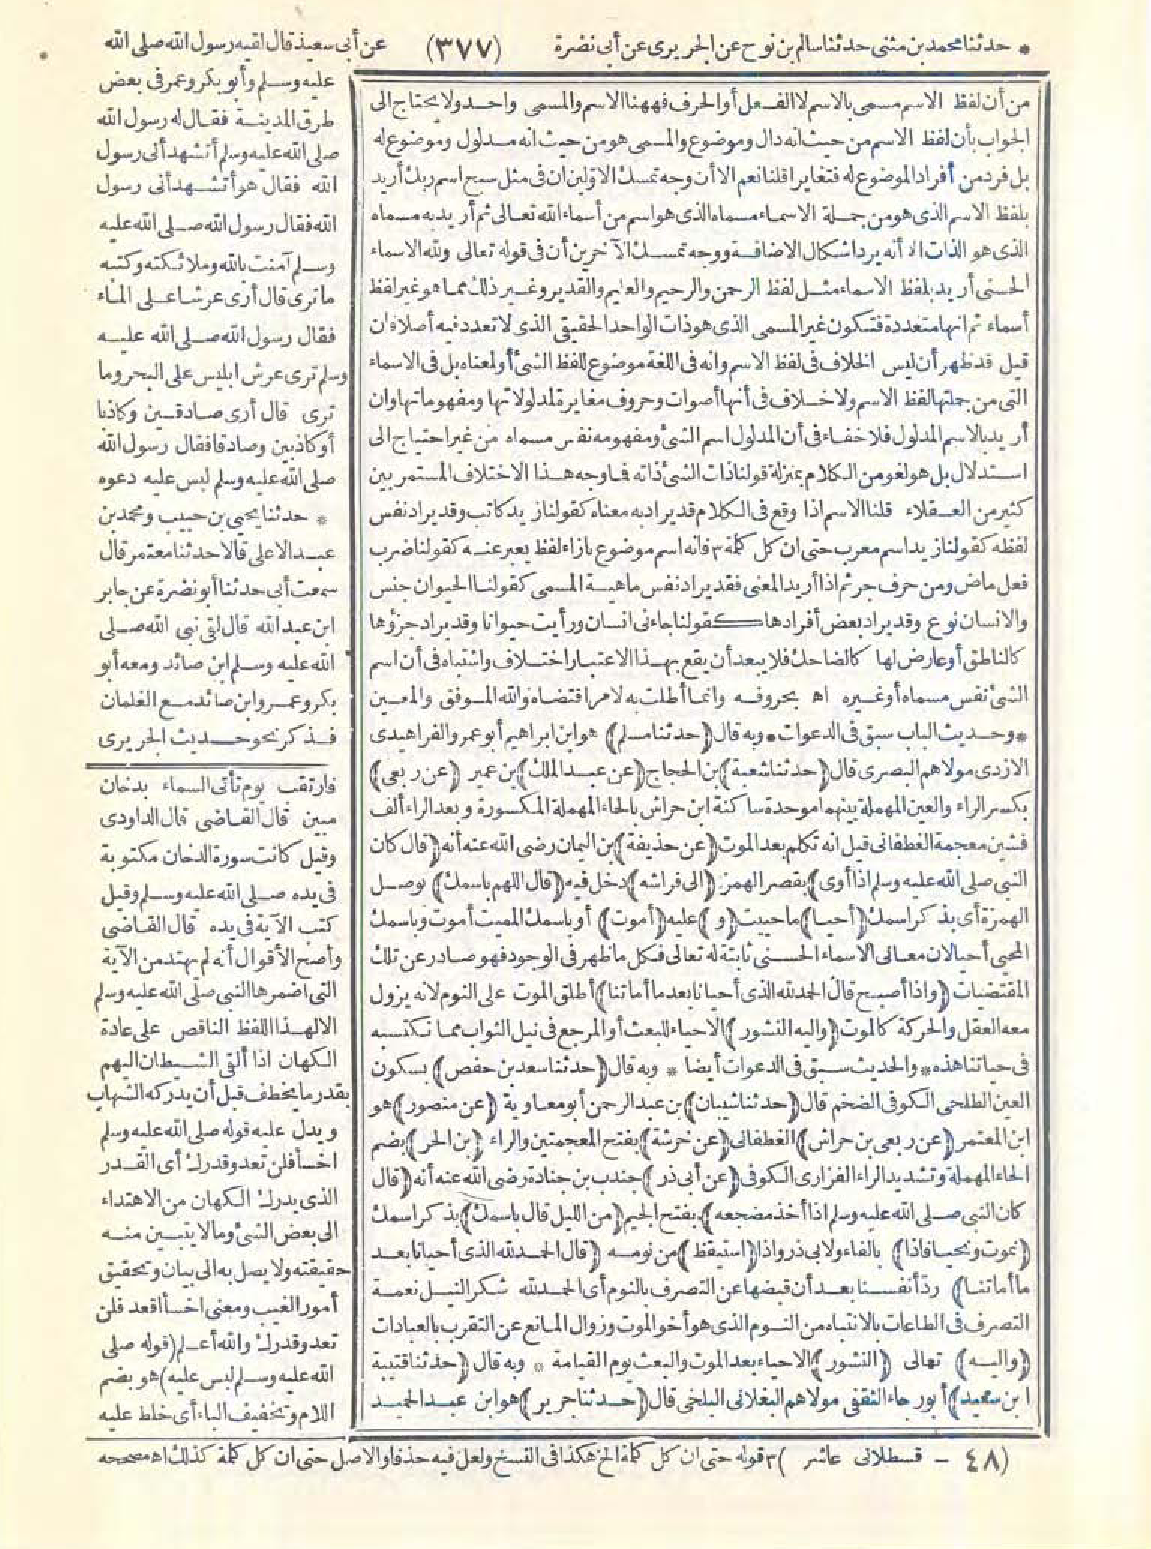 * حدثنا محمد بن مثنى حدثنا سالم بن نوح عن الجريرى عن أبى نضرة (٣٧٧) عن أبى سعيد قال لقيه رسول الله صلى الله
من أن لفظ الاسم مسمى بالاسم لا الفعل أو الحرف فههنا الاسم والمسمى واحد ولا يحتاج الى
الجواب بأن لفظ الاسم من حيث انه دال وموضوع والمسمى هو من حيث انه مدلول وموضوع له
بل فرد من أفراد الموضوع له فتغايرا قلنا نعم الا أن وجه تمسك الاولين ان فى مثل سبح اسم ربك أريد
بلفظ الاسم الذى هو من جملة الاسماء مسماه الذى هو اسم من أسماء الله تعالى ثم أريد به مسماه
الذى هو الذات الا أنه يرد اشكال الاضافة ووجه تمسك الآخرين أن فى قوله تعالى ولله الاسماء
الحسنى أريد بلفظ الاسماء مثل لفظ الرحمن والرحيم والعليم والقدير وغير ذلك مما هو غير لفظ
أسماء ثم انها متعددة فتكون غير المسمى الذى هو ذات الواحد الحقيقى الذى لا تعدد فيه أصلا فان
قيل قد ظهر أن ليس الخلاف فى لفظ الاسم وانه فى اللغة موضوع للفظ الشئ أو لمعناه بل فى الاسماء
التى من جملتها لفظ الاسم ولا خلاف فى أنها أصوات وحروف مغايرة لمدلولاتها ومفهوماتها وان
أريد بالاسم المدلول فلا خفاء فى أن المدلول اسم الشئ ومفهومه نفس مسماه من غير احتياج الى
استدلال بل هو لغو من الكلام بمنزلة قولنا ذات الشئ ذاته فما وجه هذا الاختلاف المستمر بين
كثير من العقلاء قلنا الاسم اذا وقع فى الكلام قد يراد به معناه كقولنا زيد كاتب وقد يراد نفس
لفظه كقولنا زيد اسم معرب حتى ان كل كلمة ٣ فانه اسم موضوع بازاء لفظ يعبر عنه كقولنا ضرب
فعل ماض ومن حرف جر ثم اذا أريد المعنى فقد يراد نفس ماهية المسمى كقولنا الحيوان جنس
والانسان نوع وقد يراد بعض أفرادها كقولنا جاءنى انسان ورأيت حيوانا وقد يراد جزؤها
كالناطق أو عارض لها كالضاحك فلا يبعد أن يقع بهذا الاعتبار اختلاف واشتباه فى أن اسم
الشئ نفس مسماه أو غيره اه بحروفه وانما أطلت به لامر اقتضاه والله الموفق والمعين
* وحديث الباب سبق فى الدعوات * وبه قال (حدثنا مسلم) هو ابن ابراهيم أبو عمرو الفراهيدى
الازدى مولاهم البصرى قال (حدثنا شعبة) بن الحجاج (عن عبد الملك) بن عمير (عن ربعى)
بكسر الراء والعين المهملة بينهما موحدة ساكنة ابن حراش بالحاء المهملة المكسورة وبعد الراء ألف
فشين معجمة الغطفانى قيل انه تكلم بعد الموت (عن حذيفة) بن اليمان رضى الله عنه أنه (قال كان
النبى صلى الله عليه وسلم اذا أوى) بقصر الهمز (الى فراشه) دخل فيه (قال اللهم باسمك) بوصل
الهمزة أى بذكر اسمك (أحيا) ما حييت (و) عليه (أموت) أو باسمك المميت أموت وباسمك
المحيى أحيا لان معانى الاسماء الحسنى ثابتة له تعالى فكل ما ظهر فى الوجود فهو صادر عن تلك
المقتضيات (واذا أصبح قال الحمد لله الذى أحيانا بعد ما أماتنا) أطلق الموت على النوم لانه يزول
معه العقل والحركة كالموت (واليه النشور) الاحياء للبعث أو المرجع فى نيل الثواب مما نكتسبه
فى حياتنا هذه * والحديث سبق فى الدعوات أيضا * وبه قال (حدثنا سعد بن حفص) بسكون
العين الطلحى الكوفى الضخم قال (حدثنا شيبان) بن عبد الرحمن أبو معاوية (عن منصور) هو
ابن المعتمر (عن ربعى بن حراش) الغطفانى (عن خرشة) بفتح المعجمتين والراء (بن الحر) بضم
الحاء المهملة وتشديد الراء الفزارى الكوفى (عن أبى ذر) جندب بن جنادة رضى الله عنه أنه (قال
كان النبى صلى الله عليه وسلم اذا أخذ مضجعه) بفتح الجيم (من الليل قال باسمك) بذكر اسمك
(نموت ونحيا فاذا) بالفاء ولابى ذر واذا (استيقظ) من نومه (قال الحمد لله الذى أحيانا بعد
ما أماتنا) رد أنفسنا بعد أن قبضها عن التصرف بالنوم أى الحمد لله شكرا لنيل نعمة
التصرف فى الطاعات بالانتباه من النوم الذى هو أخو الموت وزوال المانع عن التقرب بالعبادات
(واليه) تعالى (النشور) الاحياء بعد الموت والبعث يوم القيامة * وبه قال (حدثنا قتيبة
ابن سعيد) أبو رجاء الثقفى مولاهم البغلانى البلخى قال (حدثنا جرير) هو ابن عبد الحميد
عليه وسلم وأبو بكر وعمر فى بعض
طرق المدينة فقال له رسول الله
صلى الله عليه وسلم أتشهد أنى رسول
الله فقال هو أتشهد أنى رسول
الله فقال رسول الله صلى الله عليه
وسلم آمنت بالله وملائكته وكتبه
ما ترى قال أرى عرشا على الماء
فقال رسول الله صلى الله عليه
وسلم ترى عرش ابليس على البحر وما
ترى قال أرى صادقين وكاذبا
أو كاذبين وصادقا فقال رسول الله
صلى الله عليه وسلم لبس عليه دعوه
* حدثنا يحيى بن حبيب ومحمد بن
عبد الاعلى قالا حدثنا معتمر قال
سمعت أبى حدثنا أبو نضرة عن جابر
ابن عبد الله قال لقى نبى الله صلى
الله عليه وسلم ابن صائد ومعه أبو
بكر وعمر وابن صائد مع الغلمان
فذكر نحو حديث الجريرى
فارتقب يوم تأتى السماء بدخان
مبين قال القاضى قال الداودى
وقيل كانت سورة الدخان مكتوبة
فى يده صلى الله عليه وسلم وقيل
كتب الآية فى يده قال القاضى
وأصح الأقوال أنه لم يهتد من الآية
التى أضمرها النبى صلى الله عليه وسلم
الا لهذا اللفظ الناقص على عادة
الكهان اذا ألقى الشيطان اليهم
بقدر ما يخطف قبل أن يدركه الشهاب
ويدل عليه قوله صلى الله عليه وسلم
اخسأ فلن تعدو قدرك أى القدر
الذى يدرك الكهان من الاهتداء
الى بعض الشئ وما لا يتبين منه
حقيقته ولا يصل به الى بيان وتحقيق
أمور الغيب ومعنى اخسأ اقعد فلن
تعدو قدرك والله أعلم (قوله صلى
الله عليه وسلم لبس عليه) هو بضم
اللام وتخفيف الباء أى خلط عليه
(٤٨ - قسطلانى عاشر) ٣ قوله حتى ان كل كلمة الخ هكذا فى النسخ ولعل فيه حذفا والاصل حتى ان كل كلمة كذلك اه مصححه